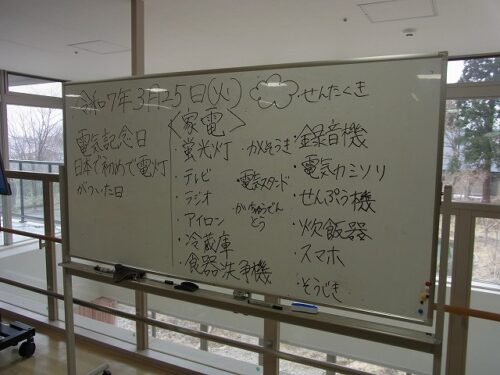 令和7年3月25日(火)
電気記念日
日本で初めて電灯
がついた日
<家電>
・蛍光灯
・テレビ
・ラジオ
・アイロン
・冷蔵庫
・食器洗浄機
電気スタンド
かいちゅうでん
とう
・せんたくき
・録音機
・電気カミソリ
・せんぷう機
・炊飯器
・スマホ
・そうじき